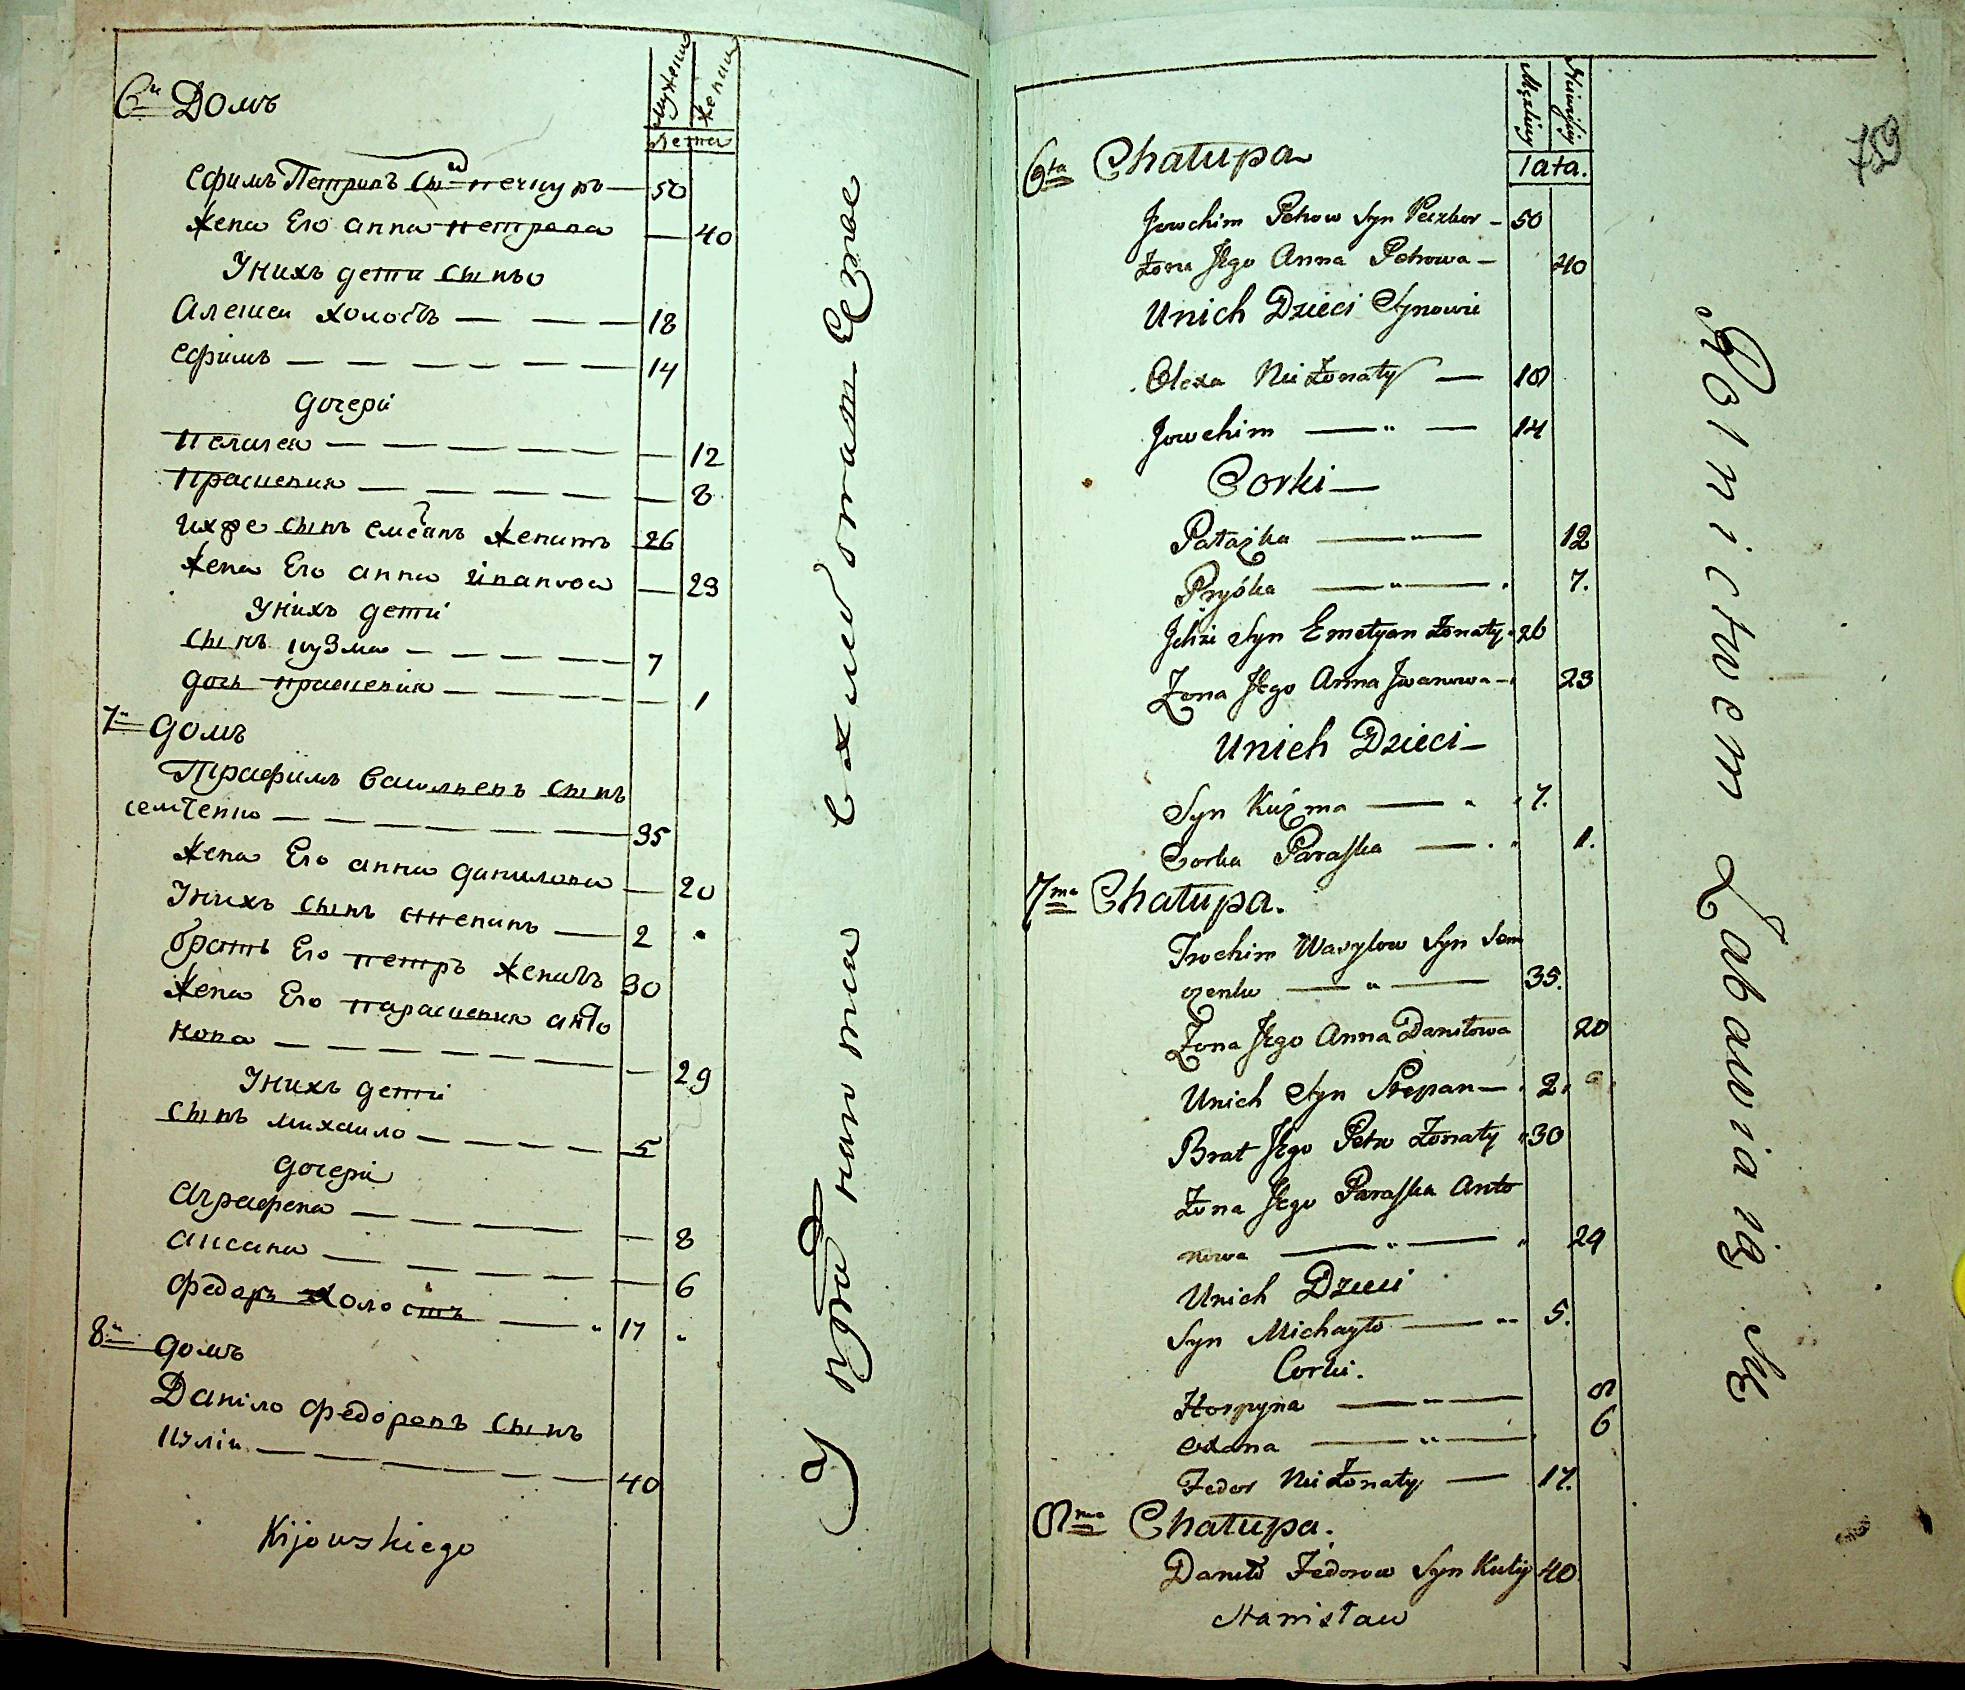 6й Домъ
мужеск
женск
лета
Ефимъ Петровъ сынъ печкуръ — 50
жена Его анна петрова — 40
Унихъ дети сыны
Алексеи холостъ — — — 18
Ефимъ — — — — — 14
дочери
Пелагея — — — — — 12
Прасковия — — — — — 8
ихже сынъ емелянъ женатъ 26
жена Его анна иванова — 23
Унихъ дети
сынъ кузма — — — — 7
дочь прасковия — — — — 1
7й домъ
Трафимъ Васильевъ сынъ
семченко — — — — — 35
жена Его анна данилова — 20
Унихъ сынъ степанъ — 2
братъ Его петръ женатъ 30
жена Его парасковия анто
нова — — — — — — 29
Унихъ дети
сынъ михаило — — — — 5
дочери
Аграфена — — — — — 8
аксана — — — — — 6
Федоръ холостъ — 17
8й домъ
Данило Федоровъ сынъ
кулик — — — — — 40
Kijowskiego
759
Męzkiey
lata.
6ta Chałupa
Jowchim Petrow Syn Peczkor – 50
Żona Jego Anna Petrowa – 40
Unich Dzieci Synowie
Olexa Nieżonaty — 18
Jowchim — „ — 14
Corki —
Pałażka — „ — 12
Pryśka — „ — 7.
Ichże Syn Emelyan żonaty 26
Żona Jego Anna Jwanowa – 23
Unich Dzieci –
Syn Kuźma — 7.
Corka Paraska — 1.
7ma Chałupa.
Trochim Wasylow Syn Sem
czenko — „ — 35.
Żona Jego Anna Daniłowa 20
Unich Syn Stepan — 2.
Brat Jego Petro żonaty 30
Żona Jego Paraska Anto
nowa — „ — 29
Unich Dzieci
Syn Michayło — 5.
Corki.
Horpyna — „ — 8
Oxana — „ — 6
Fedor Nieżonaty — 17.
8ma Chałupa.
Daniło Fedorow Syn Kuliy 40
Stanisław
Rolnictwem Zabawia się